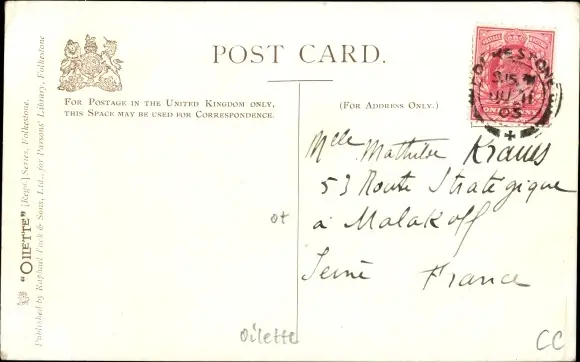 POST CARD.
FOR POSTAGE IN THE UNITED KINGDOM ONLY,
THIS SPACE MAY BE USED FOR CORRESPONDENCE.
(FOR ADDRESS ONLY.)
FOLKESTONE
JU 11
05
ONE PENNY
Mlle Mathilde Kraus
53 Route Stratégique
à Malakoff
Seine France
ot
Oilette
CC
"OILETTE" [Regd.] Series, Folkestone.
Published by Raphael Tuck & Sons, Ltd., for Parsons' Library, Folkestone